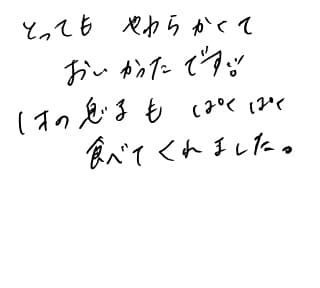 とっても やわらかくて
おいかったです!!
1才の息子も ぱくぱく
食べてくれました。